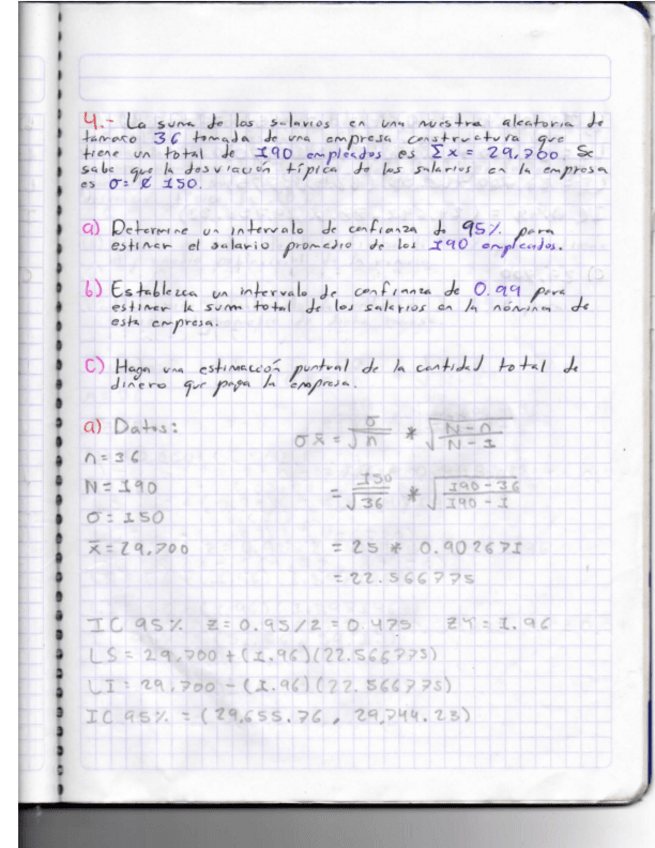 4.- La suma de los salarios en una muestra aleatoria de
tamaño 36 tomada de una empresa constructura que
tiene un total de 190 empleados es Σx = 29,700. Se
sabe que la desviación típica de los salarios en la empresa
es σ= ₡ 150.
a) Determine un intervalo de confianza de 95% para
estimar el salario promedio de los 190 empleados.
b) Establezca un intervalo de confianza de 0.99 para
estimar la suma total de los salarios en la nómina de
esta empresa.
c) Haga una estimacción puntual de la cantidad total de
dinero que paga la empresa.
a) Datos:
σx̄ = σ/√n * √(N-n)/(N-1)
n=36
N=190
= 150/√36 * √(190-36)/(190-1)
σ=150
x̄=29,700
= 25 * 0.902671
= 22.566775
IC 95% Z=0.95/2=0.475 Z4=1.96
LS=29,700+(1.96)(22.566775)
LI=29,700-(1.96)(22.566775)
IC 95% = (29,655.76, 29,744.23)